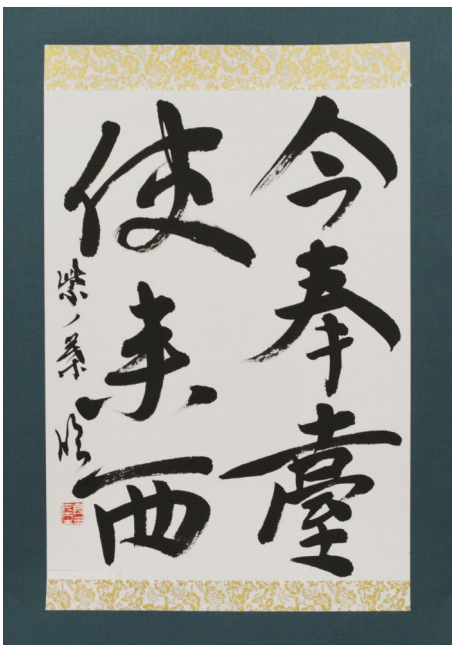 今奉臺
使来西
紫ノ葉 臨